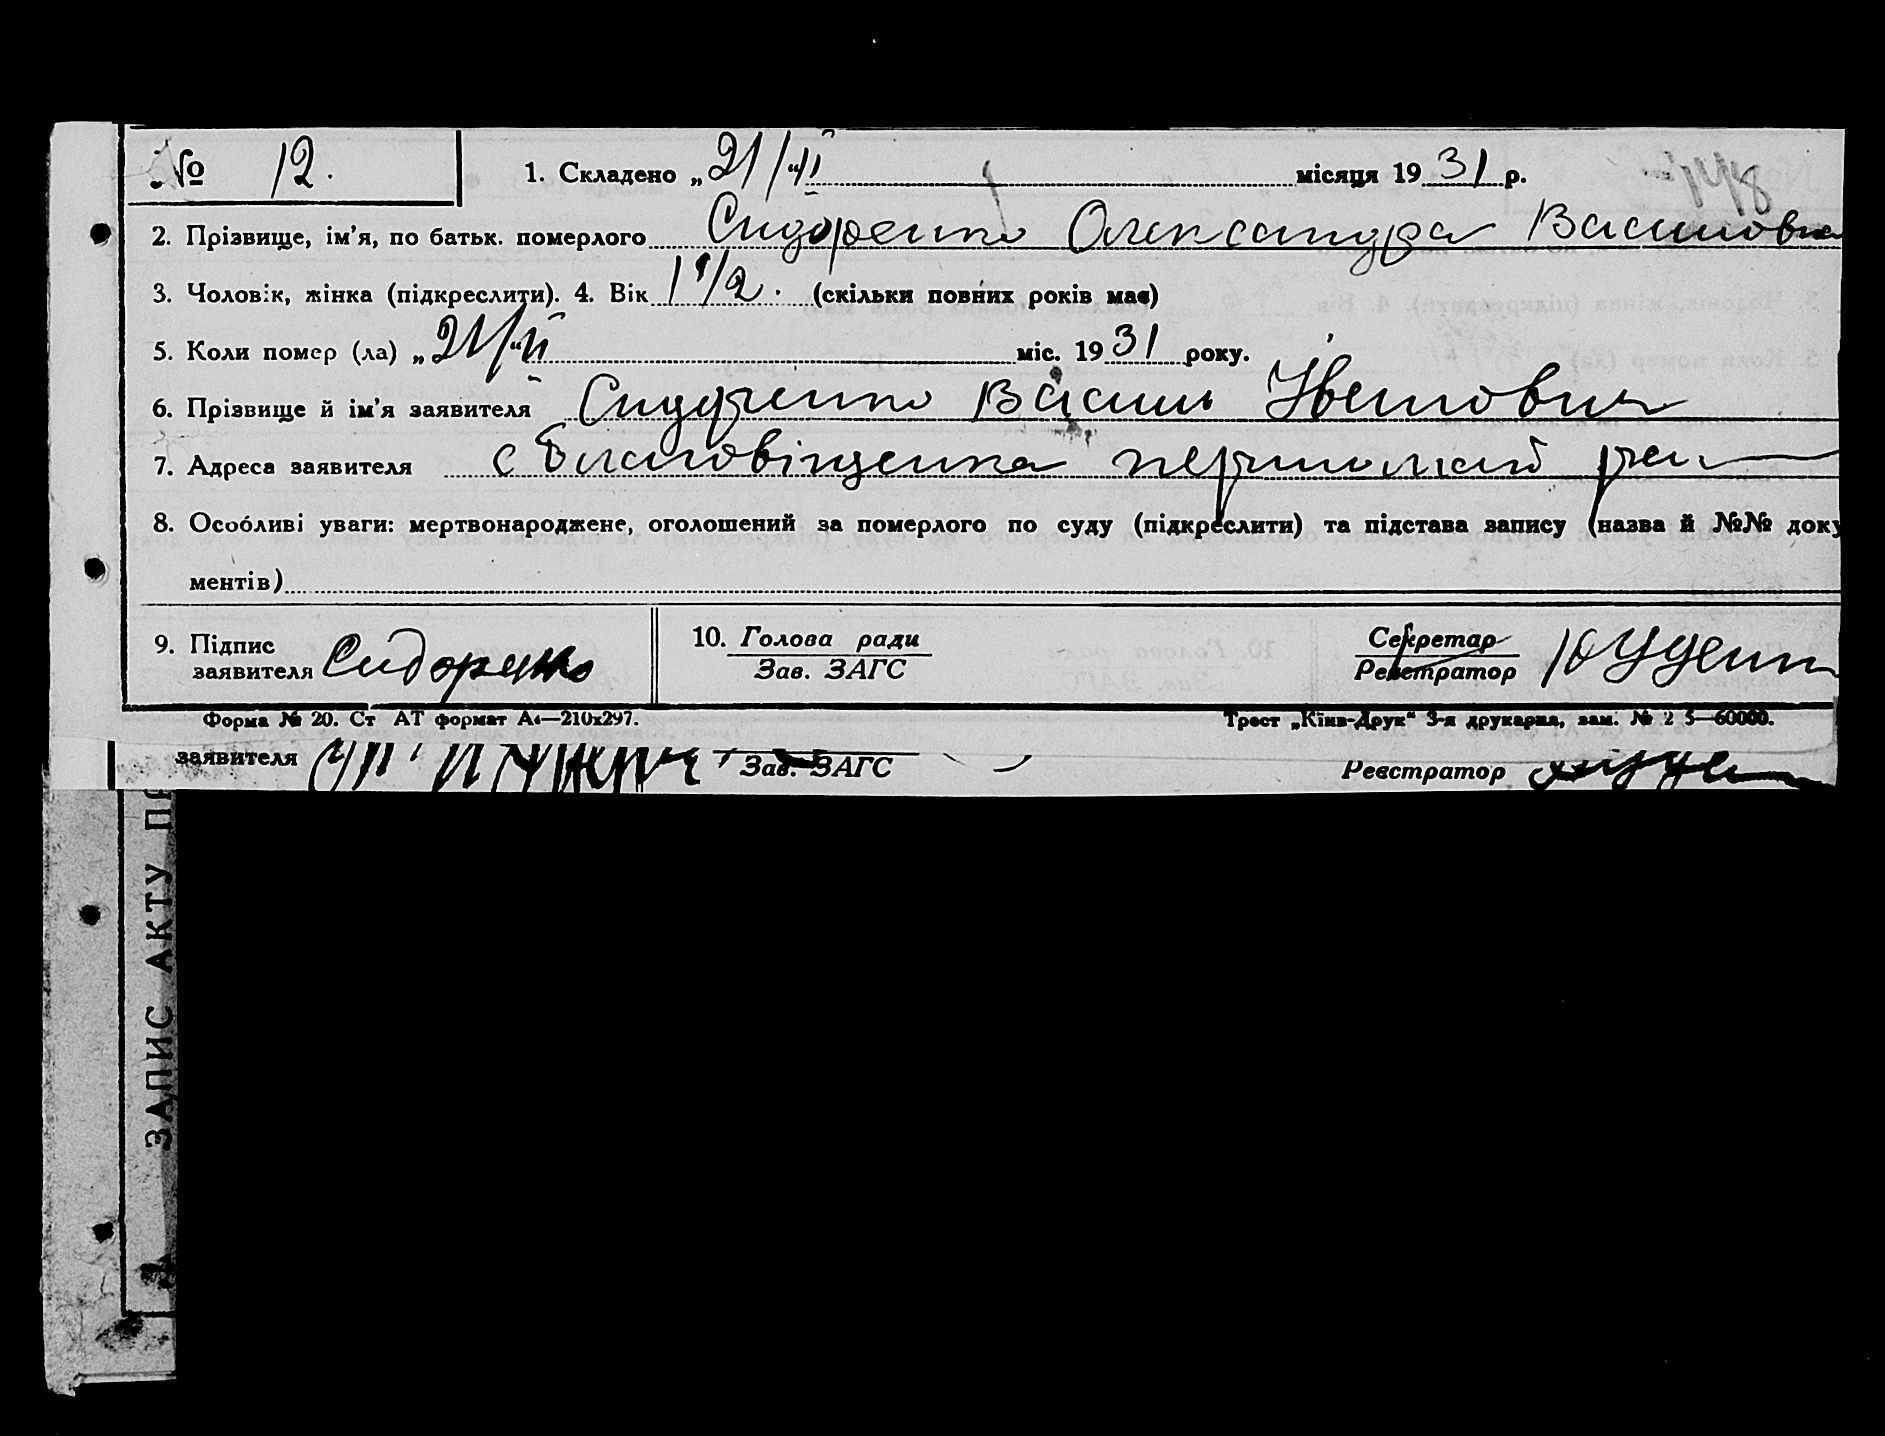 № 12. 1. Складено „21/II місяця 1931 р.
2. Прізвище, ім’я, по батьк. померлого Сидоренко Олександра Василовна
3. Чоловік, жінка (підкреслити). 4. Вік 1 1/2. (скільки повних років має)
5. Коли помер (ла) „21/II міс. 1931 року.
6. Прізвище й ім’я заявителя Сидоренко Василь
7. Адреса заявителя с Благовіщенка
8. Особливі уваги: мертвонароджене, оголошений за померлого по суду (підкреслити) та підстава запису (назва й №№ доку
ментів)
9. Підпис заявителя Сидоренко
10. Голова ради
Зав. ЗАГС
Секретар
Реєстратор
Форма № 20. Ст АТ формат А4—210х297. Трест „Київ-Друк“ 3-я друкарня, зам. № 2 5—60000.
заявителя Зав. ЗАГС Реєстратор
ЗАПИС АКТУ ПР